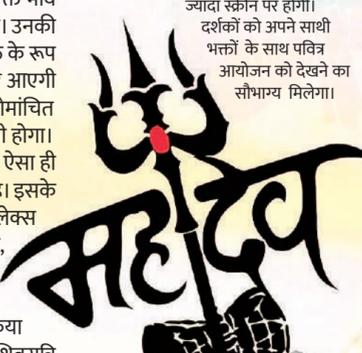 । उनकी
के रूप
आएगी
रोमांचित
होगा।
ऐसा ही
। इसके
ज्यादा स्क्रीन पर होगी।
दर्शकों को अपने साथी
भक्तों के साथ पवित्र
आयोजन को देखने का
सौभाग्य मिलेगा।
महादेव